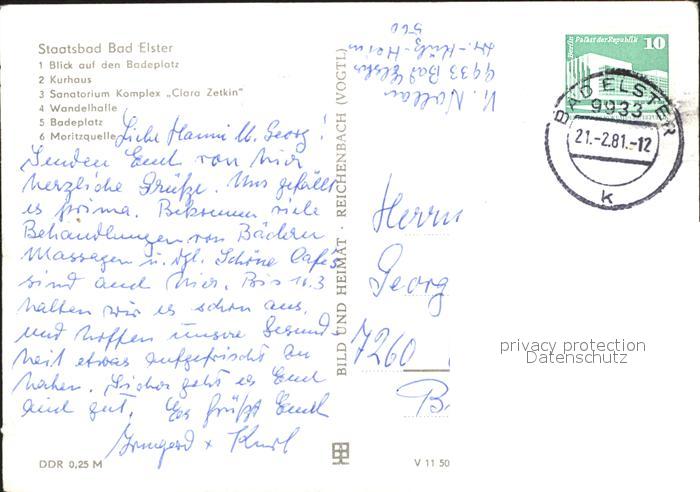 Staatsbad Bad Elster
1 Blick auf den Badeplatz
2 Kurhaus
3 Sanatorium Komplex „Clara Zetkin"
4 Wandelhalle
5 Badeplatz
6 Moritzquelle
Liebe Hanni u. Georg!
Senden Euch von hier
herzliche Grüße. Uns gefällt
es prima. Bekommen viele
Behandlungen von Bädern
Massagen u. dgl. Schöne Cafés
sind auch hier. Bis 11.3
halten wir es schon aus,
und hoffen unsere Gesund-
heit etwas aufgefrischt zu
haben. Sicher geht es Euch
auch gut. Es grüßt Euch
Irmgard + Kurt
DDR 0,25 M
BILD UND HEIMAT · REICHENBACH (VOGTL)
V 11 50
9933 Bad Elster
Berlin Palast der Republik 10
BAD ELSTER
9933
21.-2.81.-12
k
Herrn
Georg
7260
B
privacy protection
Datenschutz